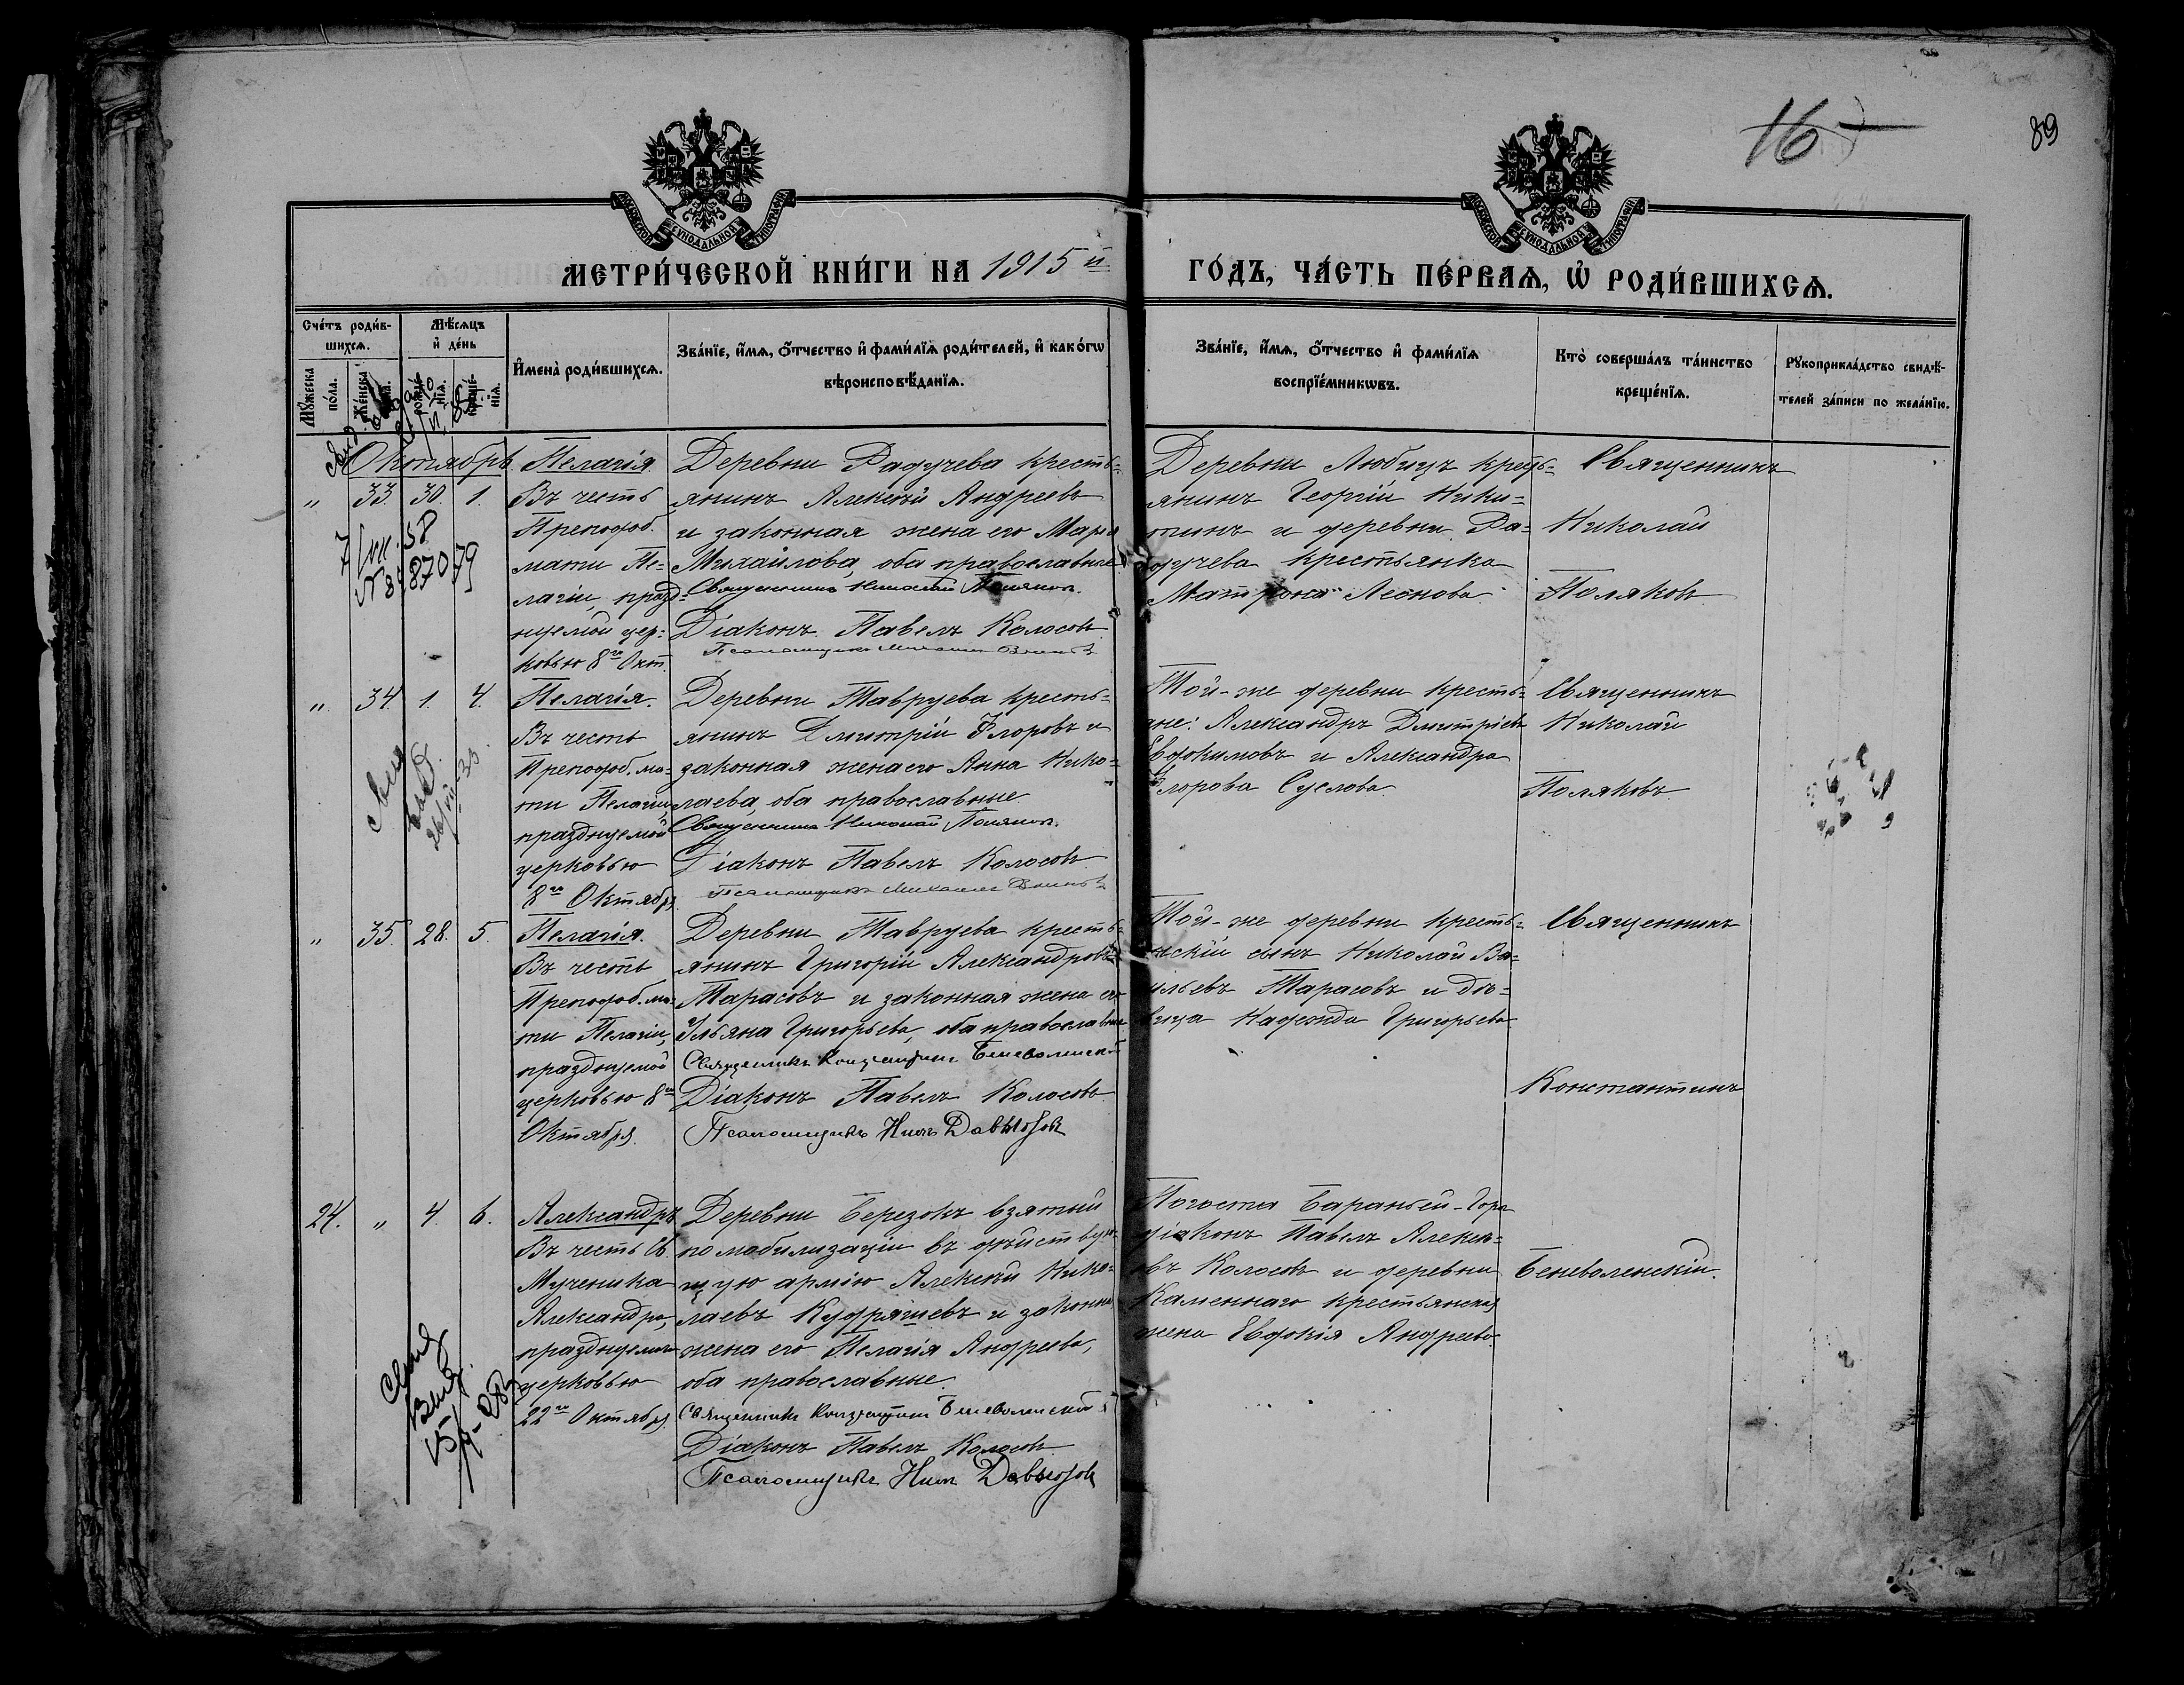 16
89
МОСКОВСКОЙ СѴНОДАЛЬНОЙ ТИПОГРАФІИ
МОСКОВСКОЙ СѴНОДАЛЬНОЙ ТИПОГРАФІИ
МЕТРИ́ЧЕСКОЙ КНИ́ГИ НА 1915 й
ГО́ДЪ, ЧА́СТЬ ПЕ́РВАѦ, Ѡ҆ РОДИ́ВШИХСѦ.
Сче́тъ роди́в-
шихсѧ.
Мѹ́жеска
по́ла.
Же́нска
Мѣ́сѧцъ
и҆ де́нь
рожде́-
нїѧ.
креще́-
нїѧ.
И҆мена̀ роди́вшихсѧ.
Зва́нїе, и҆́мѧ, ѻ҆́тчество и҆ фами́лїѧ роди́телей, и҆ како́гѡ
вѣроисповѣ́данїѧ.
Зва́нїе, и҆́мѧ, ѻ҆́тчество и҆ фами́лїѧ
воспрїе́мникѡвъ.
Кто̀ соверша́лъ та́инство
креще́нїѧ.
Рѹкоприкла́дство свидѣ́-
телей за́писи по жела́нїю.
Октябрь.
„ 33. 30. 1.
Пелагія.
Въ честь
Преподоб.
мати Пе-
лагіи, празд-
нуемой цер-
ковью 8го Окт.
Деревни Радучева кресть-
янинъ Алексѣй Андреевъ
и законная жена его Марія
Михайлова, оба православные
Священникъ Николай Поляковъ.
Діаконъ Павелъ Колосовъ
Псаломщикъ Михаилъ
Деревни Любицъ кресть-
янинъ Георгій Ники-
тинъ и деревни Ра-
дучева крестьянка
Матрона Леонова.
Священникъ
Николай
Поляковъ
„ 34. 1. 4.
Пелагія.
Въ честь
Преподоб. ма-
ти Пелагіи,
празднуемой
церковью
8го Октября.
Деревни Тавруева кресть-
янинъ Дмитрій Флоровъ и
законная жена его Анна Нико-
лаева, оба православные
Священникъ Николай Поляковъ.
Діаконъ Павелъ Колосовъ
Псаломщикъ Михаилъ
Той-же деревни кресть-
яне: Александръ Дмитріевъ
Евдокимовъ и Александра
Флорова Суслова.
Священникъ
Николай
Поляковъ.
„ 35. 28. 5.
Пелагія.
Въ честь
Преподоб. ма-
ти Пелагіи,
празднуемой
церковью 8го
Октября.
Деревни Тавруева кресть-
янинъ Григорій Александровъ
Тарасовъ и законная жена его
Ульяна Григорьева, оба православные
Священникъ Константинъ Беневоленскій
Діаконъ Павелъ Колосовъ
Псаломщикъ Давыдовъ
Той-же деревни кресть-
янскій сынъ Николай Ва-
сильевъ Тарасовъ и дѣ-
вица Надежда Григорьева
Священникъ
Константинъ
24. „ 4. 6.
Александръ
Въ честь Св.
Мученика
Александра,
празднуемаго
церковью
22го Октября.
Деревни Березокъ взятый
по мобилизаціи въ дѣйствую-
щую армію Алексѣй Нико-
лаевъ Кудряшевъ и законная
жена его Пелагія Андреева,
оба православные.
Священникъ Константинъ Беневоленскій
Діаконъ Павелъ Колосовъ
Псаломщикъ Давыдовъ
Погоста Бараньей-Горы
діаконъ Павелъ Алексѣ-
евъ Колосовъ и деревни
Каменнаго крестьянская
жена Евдокія Андреева.
Беневоленскій.